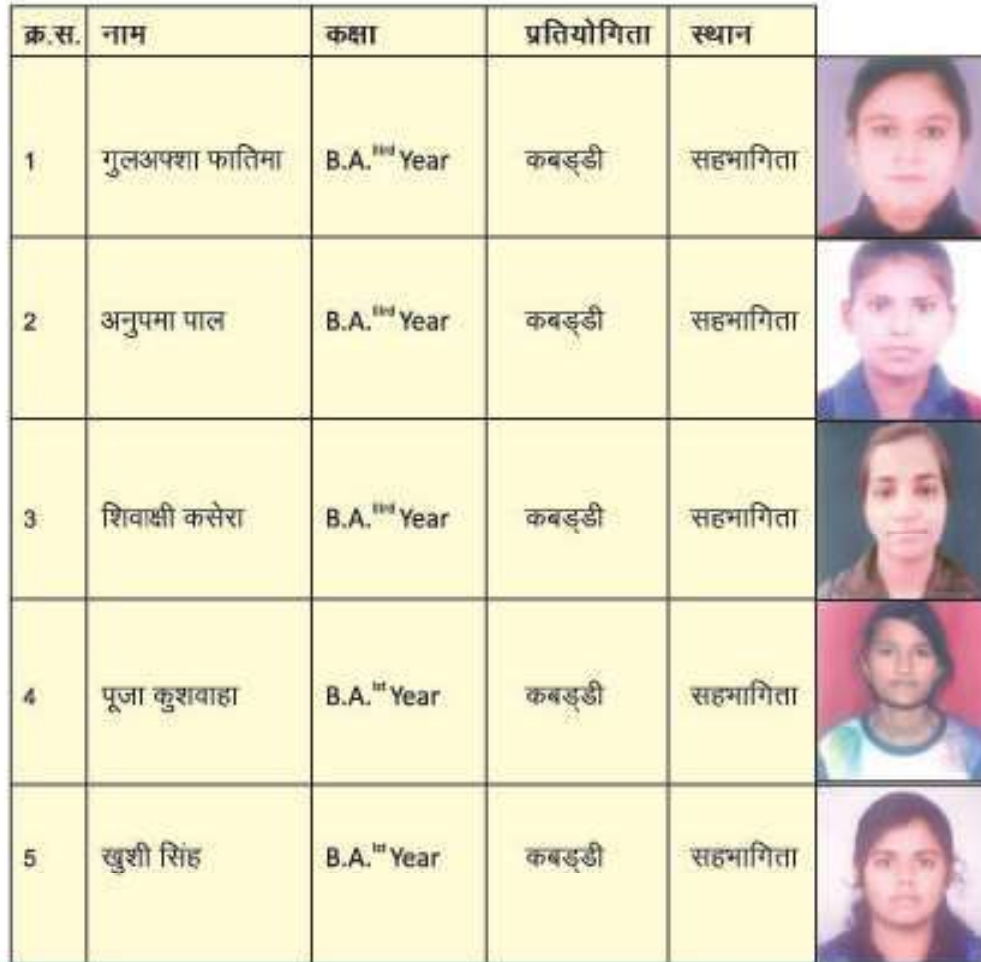 क्र.स. नाम कक्षा प्रतियोगिता स्थान
1 गुलअफ्शा फातिमा B.A.IIIrd Year कबड्डी सहभागिता
2 अनुपमा पाल B.A.IIIrd Year कबड्डी सहभागिता
3 शिवाक्षी कसेरा B.A.IIIrd Year कबड्डी सहभागिता
4 पूजा कुशवाहा B.A.Ist Year कबड्डी सहभागिता
5 खुशी सिंह B.A.Ist Year कबड्डी सहभागिता